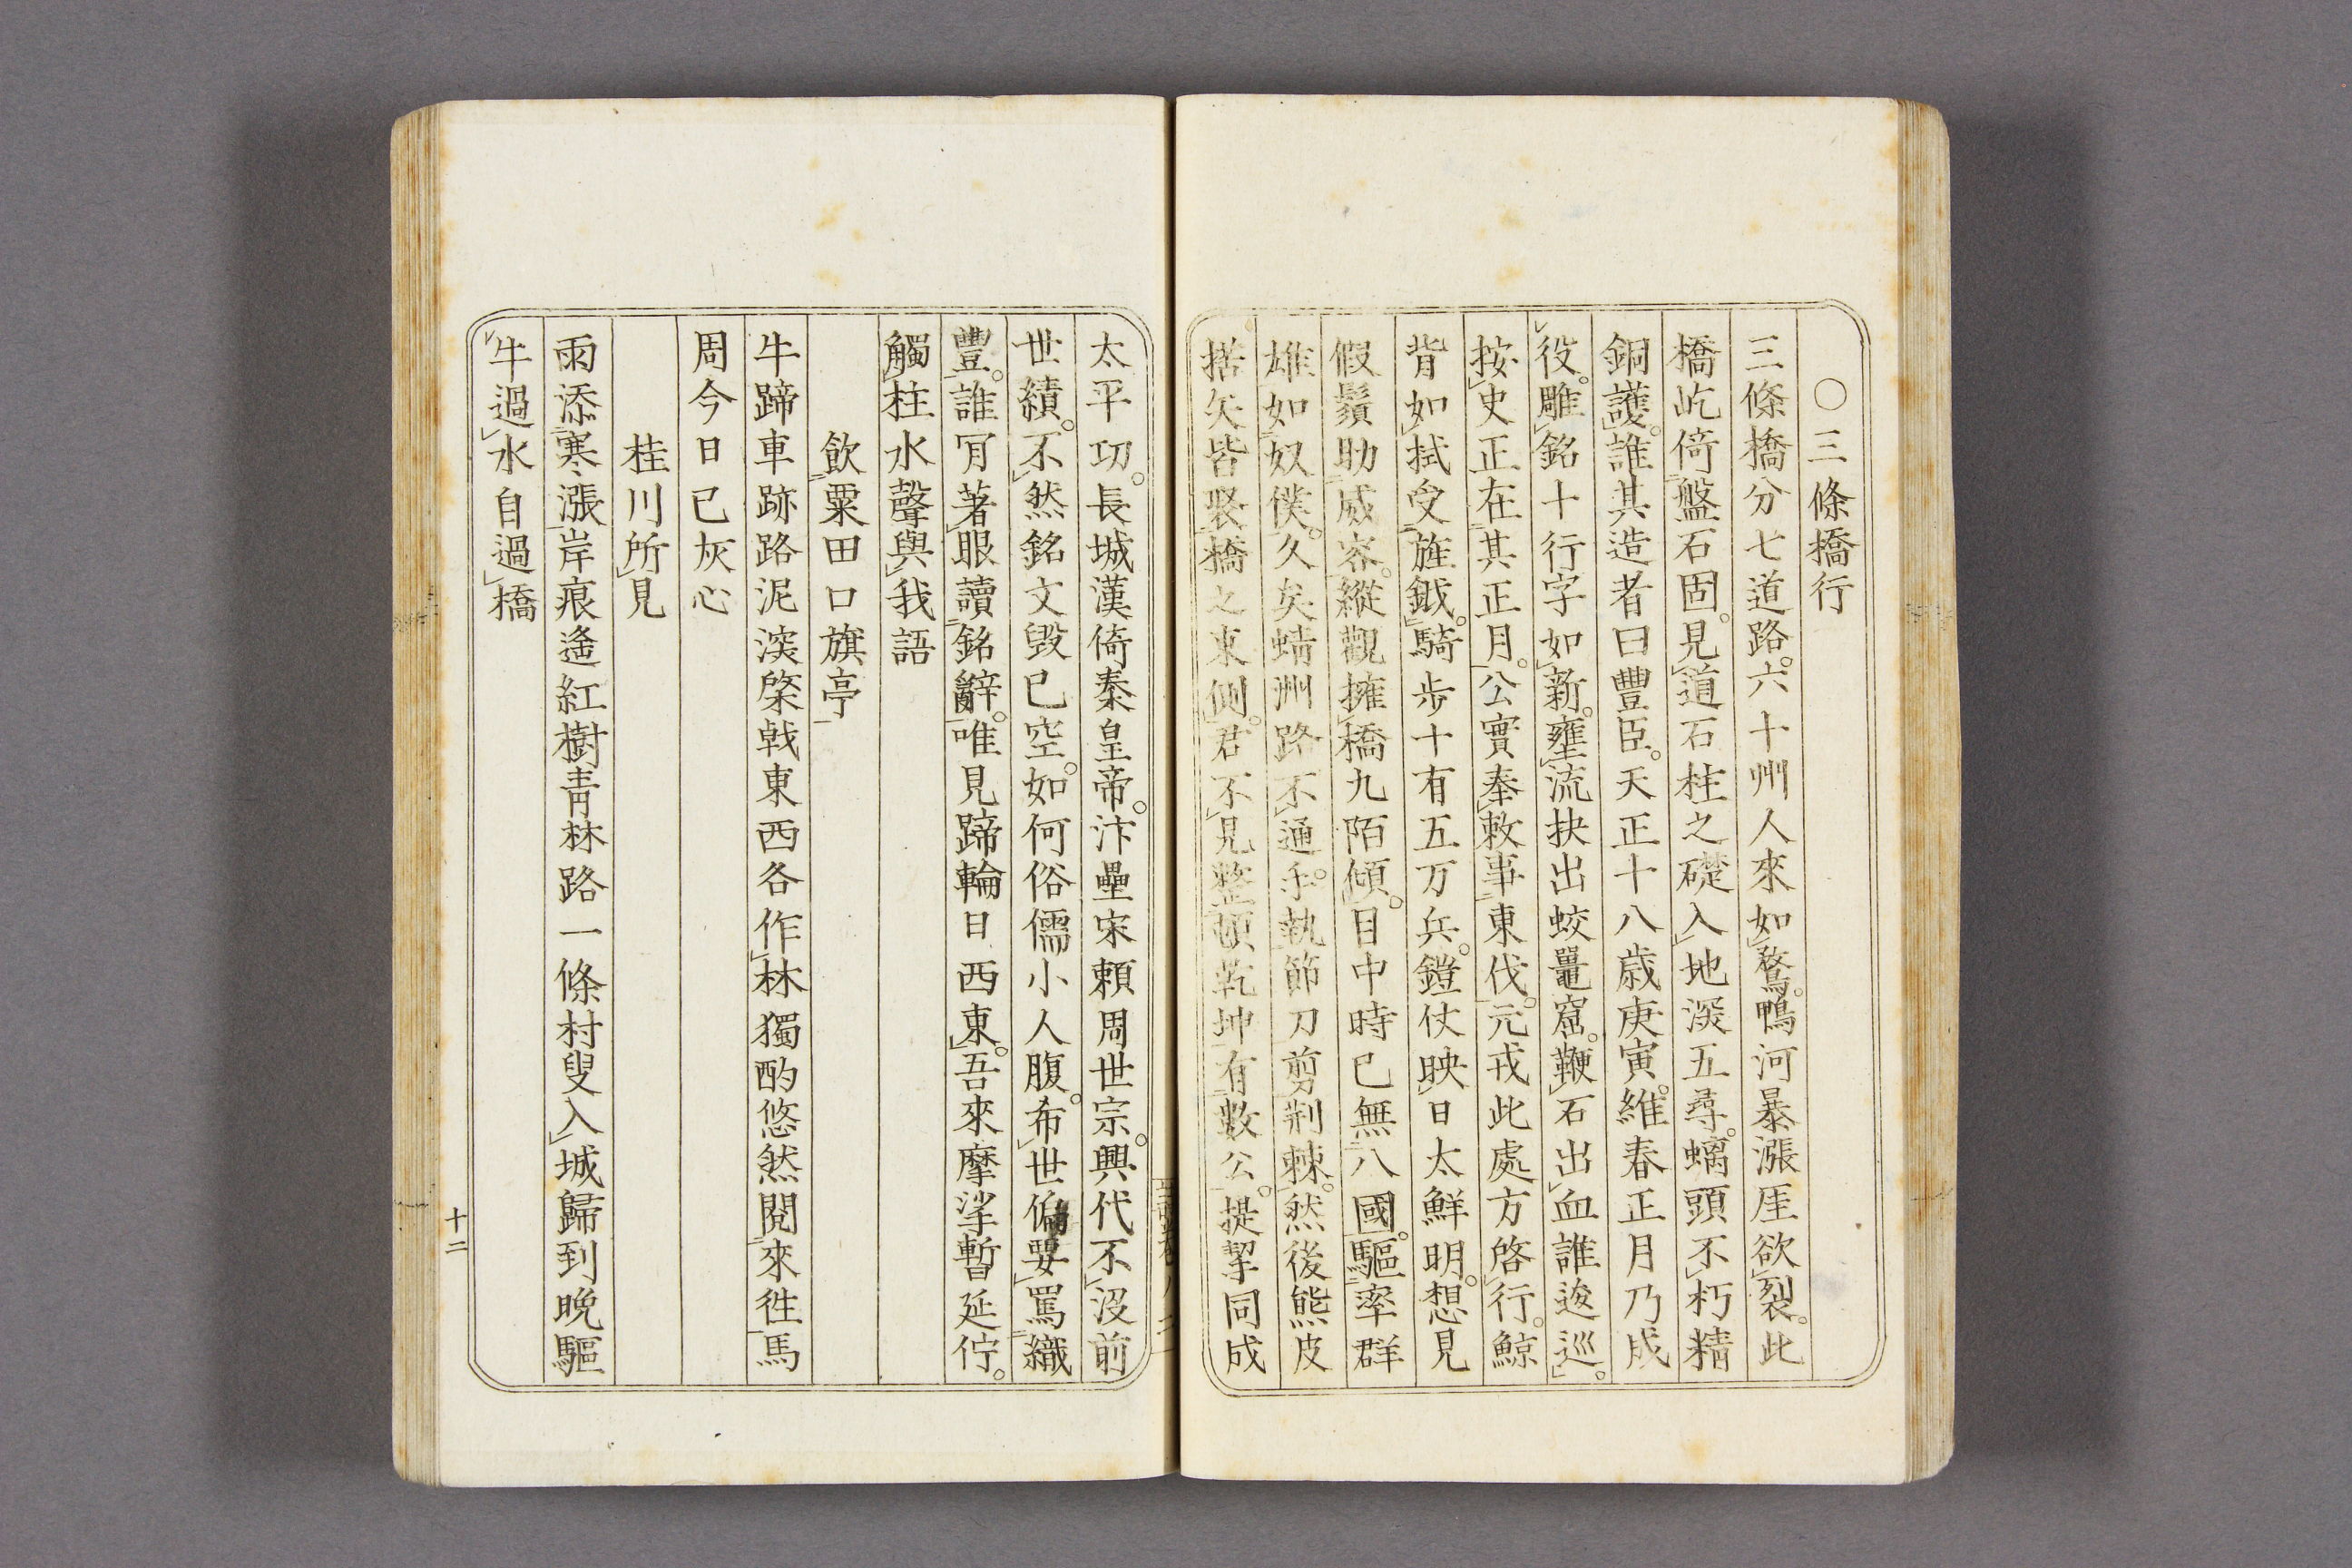 〇三條橋行
三條橋分七道路。六十州人來如鶩。鴨河暴漲厓欲裂。此
橋屹倚盤石固。見道石柱之礎入地深五尋。螭頭不朽精
銅護。誰其造者曰豐臣。天正十八歳庚寅。維春正月乃成
役。雕銘十行字如新。壅流抉出蛟鼉窟。鞭石出血誰逡巡。
按史正在其正月。公實奉敕事東伐。元戎此處方啓行。鯨
背如拭受旌鉞。騎歩十有五万兵。鎧仗映日太鮮明。想見
假鬚助威容。縱觀擁橋九陌傾。目中時已無八國。驅率群
雄如奴僕。久矣蜻洲路不通。手執節刀剪荆棘。然後熊皮
楛矢皆聚橋之東側。君不見整頓乾坤有數公。提挈同成
太平功。長城漢倚秦皇帝。汴壘宋頼周世宗。興代不没前
世績。不然銘文毀已空。如何俗儒小人腹。希世偏要罵織
豐。誰冐著眼讀銘辭。唯見蹄輪日西東。吾來摩挲暫延佇。
觸柱水聲與我語
飲粟田口旗亭
牛蹄車跡路泥深棨戟東西各作林獨酌悠然閲來徃馬
周今日已灰心
桂川所見
雨添寒漲岸痕遙紅樹青林路一條村叟入城歸到晩驅
牛過水自過橋
十二